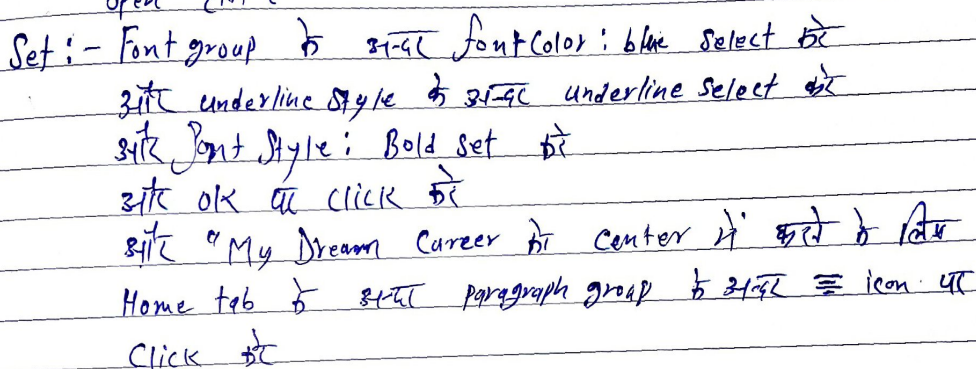 Set :- Font group के अन्दर font Color : blue select करें
और underline style के अन्दर underline select करें
और Font Style : Bold set करें
और ok पर click करें
और "My Dream Career को Center में करने के लिए
Home tab के अन्दर paragraph group के अन्दर ≡ icon पर
Click करें